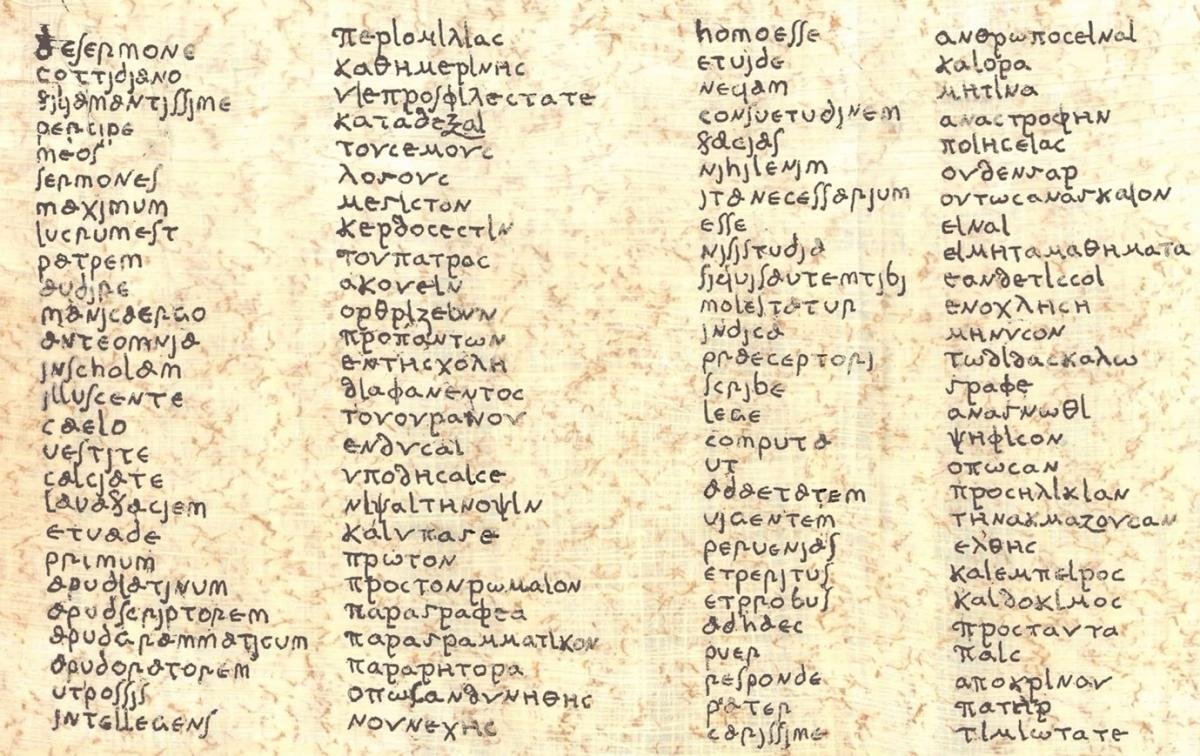 desermone περιομιλιας
cottidiano καθημερινης
filiamantissime υιεπροσφιλεστατε
percipe καταδεξαι
meos τουσεμους
sermones λογους
maximum μεγιστον
lucrumest κερδοσεστιν
patrem τουπατρος
audire ακουειν
manicaergo ορθριζεουν
anteomnia προπαντων
inscholam ενπησχολη
illuscente διαφανεντος
caelo τουουρανου
uestite ενδυσαι
calciate υποδησαισε
lauafaciem νιψαιτηνοψιν
etuade καιυπαγε
primum πρωτον
apudlatinum προστονρωμαιον
apudscriptorem παραγραφεα
apudgrammaticum παραγραμματικον
apudoratorem παραρητορα
utpossis οπωσανδυνηθης
intellegens νουνεχης
homoesse ανθρωποσειναι
etuide καιορα
nequam μητινα
consuetudinem αναστροφην
facias ποιησειας
nihilenim ουδενγαρ
itanecessarium ουτωσαναγκαιον
esse ειναι
nisistudia ειμηταμαθηματα
siquisautemtibi εανδετισσοι
molestatur ενοχληση
indica μηνυσον
praeceptori τωδιδασκαλω
scribe γραφε
lege αναγνωθι
computa ψηφισον
ut οπωσαν
adaetatem προσηλικιαν
uigentem τηνακμαζουσαν
peruenias ελθης
etperitus καιεμπειρος
etprobus καιδοκιμος
adhaec προσταυτα
puer παις
responde αποκριναυ
pater πατηρ
carissime τιμιωτατε